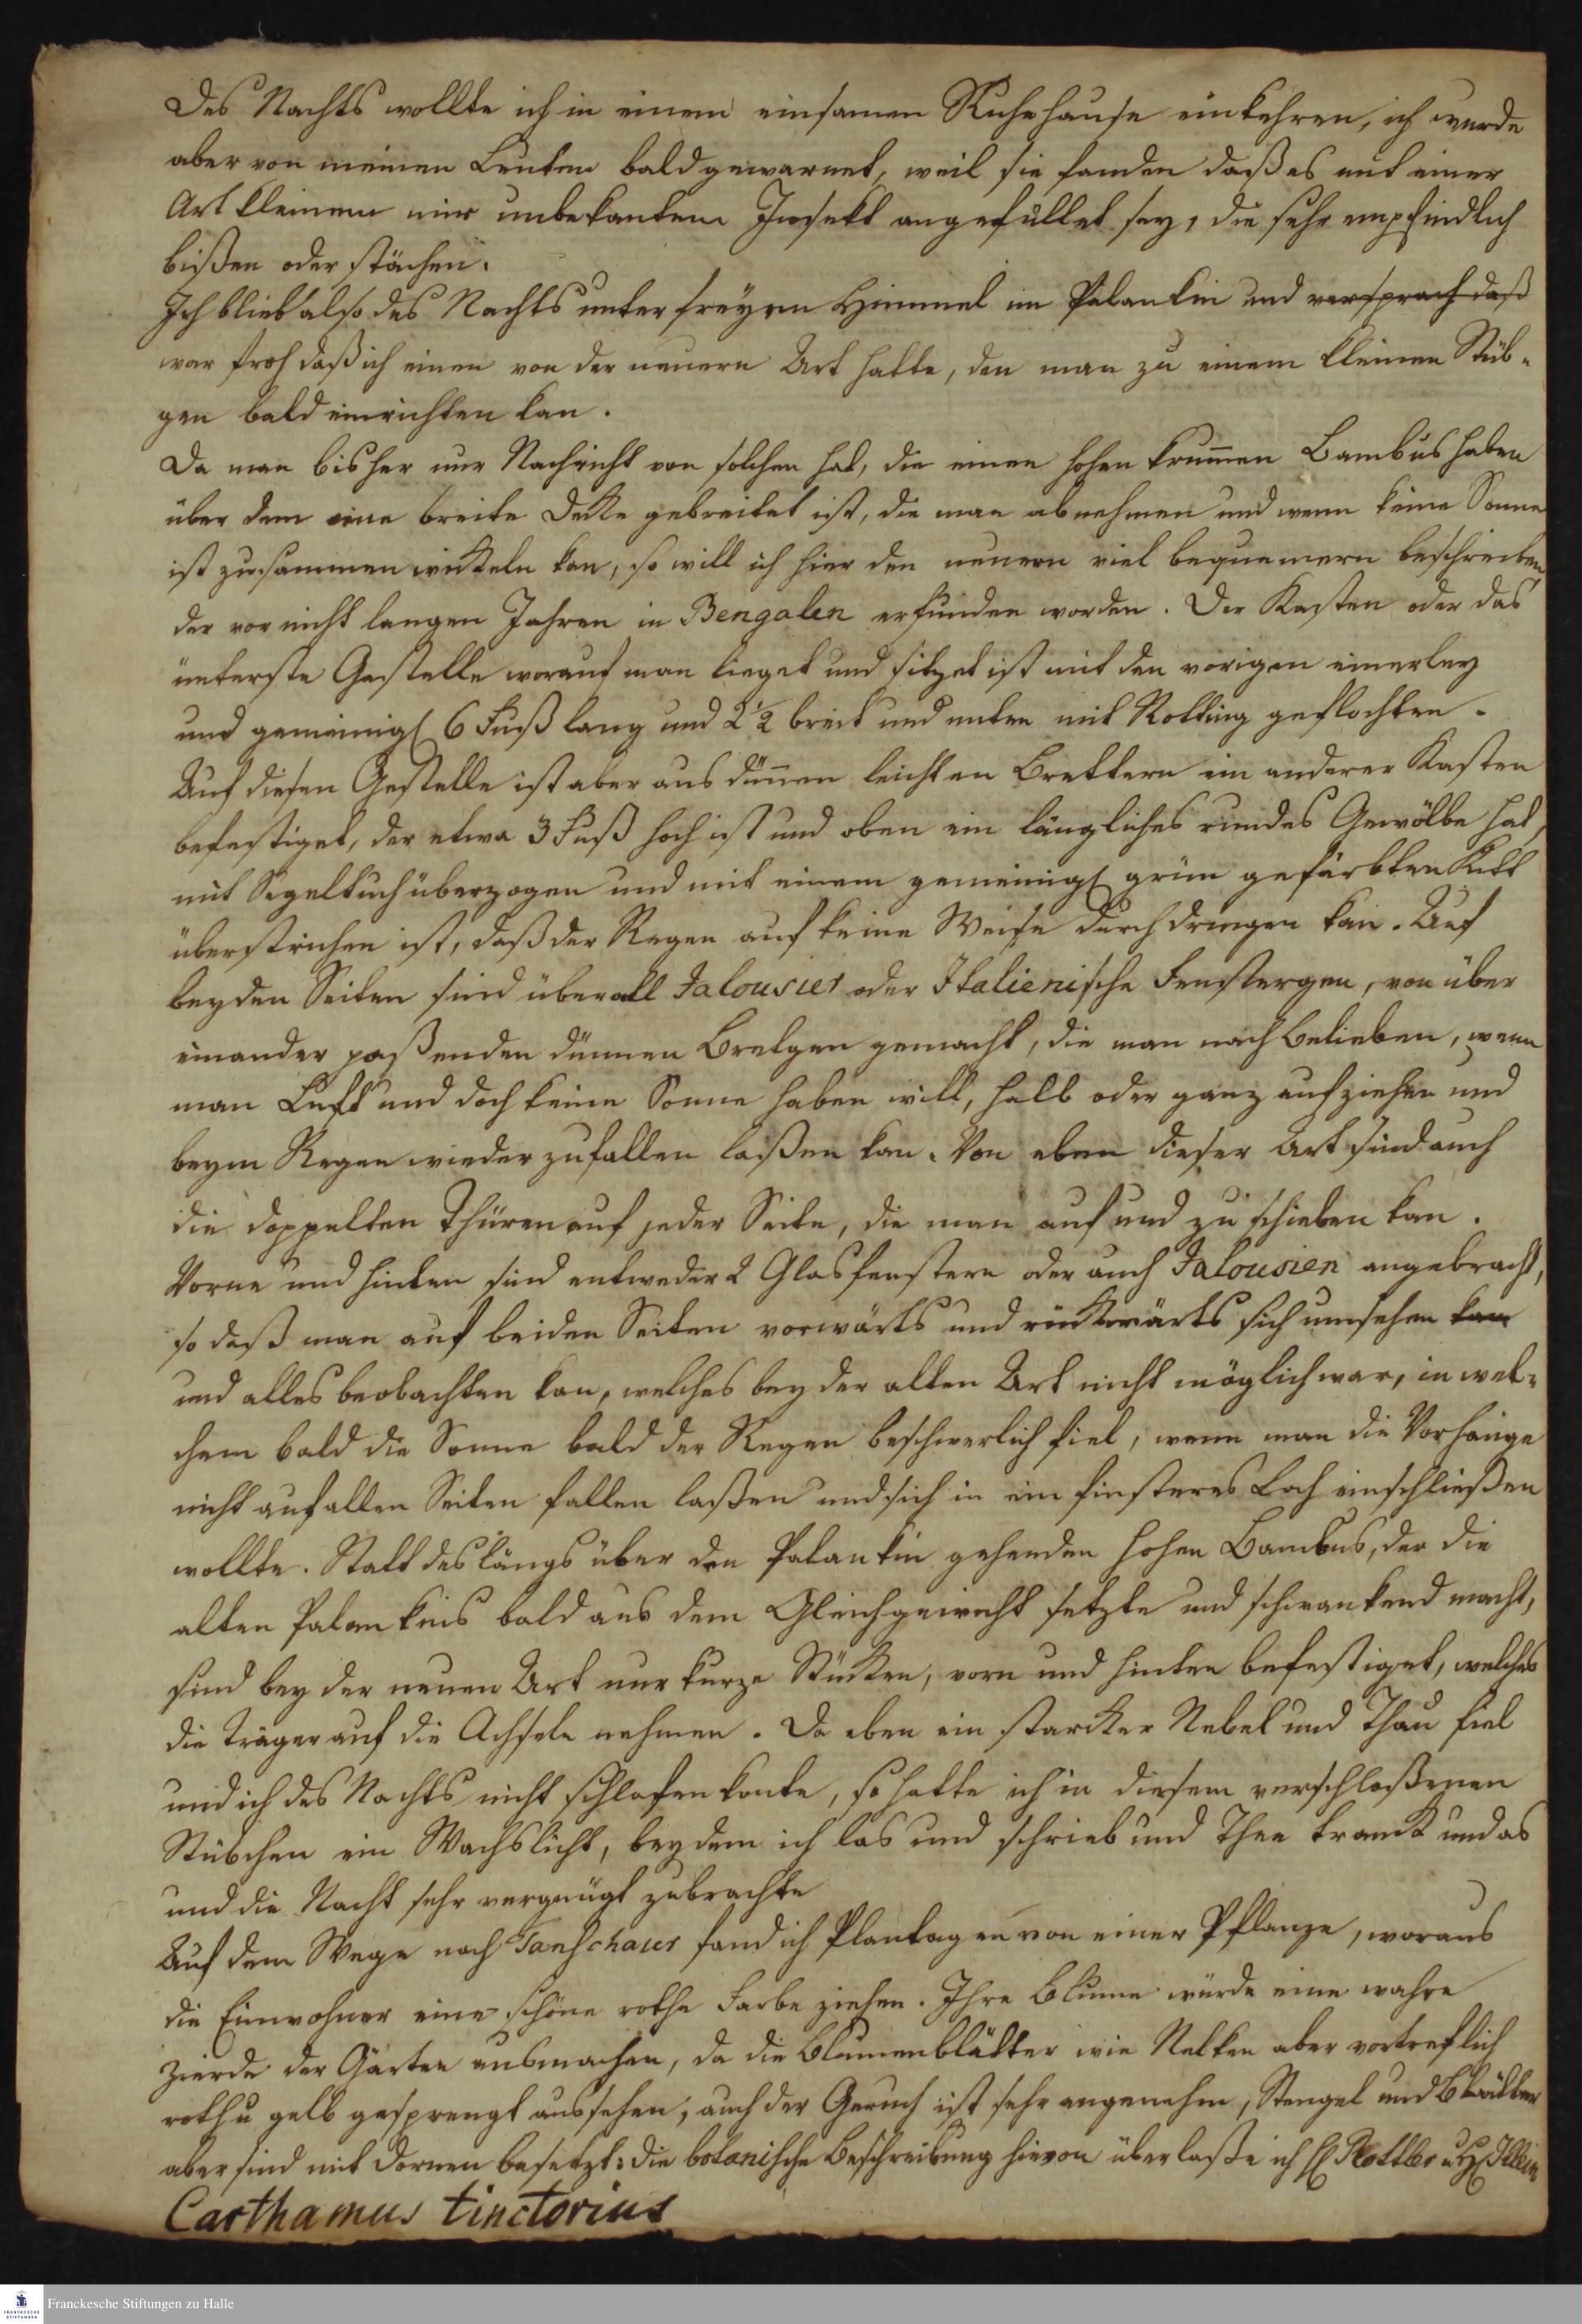 Des Nachts wollte ich in einem einsamen Ruhehause einkehren, ich wurde
aber von meinen Leuten bald gewarnet, weil sie fanden daß es mit einer
Art kleinem mir unbekantem Insekt angefüllet sey, die sehr empfindlich
bißen oder stächen.
Ich blieb also des Nachts unter freyem Himmel im Palankin und versprach daß
war froh daß ich einen von der neuern Art hatte, den man zu einem kleinen Stüb-
gen bald einrichten kan.
Da man bisher nur Nachricht von solchen hat, die einen hohen krummen Bambus haben
über dem eine breite Decke gebreitet ist, die man abnehmen und wenn keine Sonne
ist zusammen wickeln kan, so will ich hier den neuern viel bequemern beschreiben
der vor nicht langen Jahren in Bengalen erfunden worden. Der Kasten oder das
unterste Gestelle worauf man lieget und sitzet ist mit den vorigen einerley
und gemeinigl 6 Fuß lang und 2 1/2 breit und unten mit Rotting geflochten.
Auf diesen Gestelle ist aber aus dünnen leichten Brettern ein anderer Kasten
befestiget, der etwa 3 Fuß hoch ist und oben ein längliches rundes Gewölbe hat,
mit Segeltuch überzogen und mit einem gemeinigl grün gefärbten Kitt
überstrichen ist, daß der Regen auf keine Weise durchdringen kan. Auf
beyden Seiten sind überall Jalousies oder Italienische Fenstergen, von über
einander paßenden dünnen Bretgen gemacht, die man nach Belieben, wenn
man Luft und doch keine Sonne haben will, halb oder ganz aufziehen und
beym Regen wieder zufallen laßen kan. Von eben dieser Art sind auch
die doppelten Thüren auf jeder Seite, die man auf und zu schieben kan.
Vorne und hinten sind entweder 2 Glasfenstern oder auch Jalousien angebracht,
so daß man auf beiden Seiten vorwärts und rückwärts sich umsehen kan
und alles beobachten kan, welches bey der alten Art nicht möglich war, in wel-
chem bald die Sonne bald der Regen beschwerlich fiel, wenn man die Vorhänge
nicht auf allen Seiten fallen laßen und sich in ein finsteres Loch einschließen
wollte. Statt des längs über den Palankin gehenden hohen Bambus, der die
alten Palankins bald aus dem Gleichgewicht setzte und schwankend macht,
sind bey der neuen Art nur kurze Stücken, vorn und hinten befestiget, welches
die Träger auf die Achseln nehmen. Da eben ein starcker Nebel und Thau fiel
und ich des Nachts nicht schlafen konte, so hatte ich in diesem verschloßenen
Stübchen ein Wachslicht, bey dem ich las und schrieb und Thee tranck und as
und die Nacht sehr vergnügt zubrachte
Auf dem Wege nach Tanschaur fand ich Plantagen von einer Pflanze, woraus
die Einwohner eine schöne rothe Farbe ziehen. Ihre Blume würde eine wahre
Zierde der Gärten ausmachen, da die Blumenblätter wie Nelken aber vortreflich
roth u gelb gesprengt aussehen, auch der Geruch ist sehr angenehm, Stengel und Blätter
aber sind mit Dornen besetzt: die botanische Beschreibung hievon überlaße ich H Rottler u H Klein
Carthamus tinctorius
Franckesche Stiftungen zu Halle
FRANCKESCHE
STIFTUNGEN